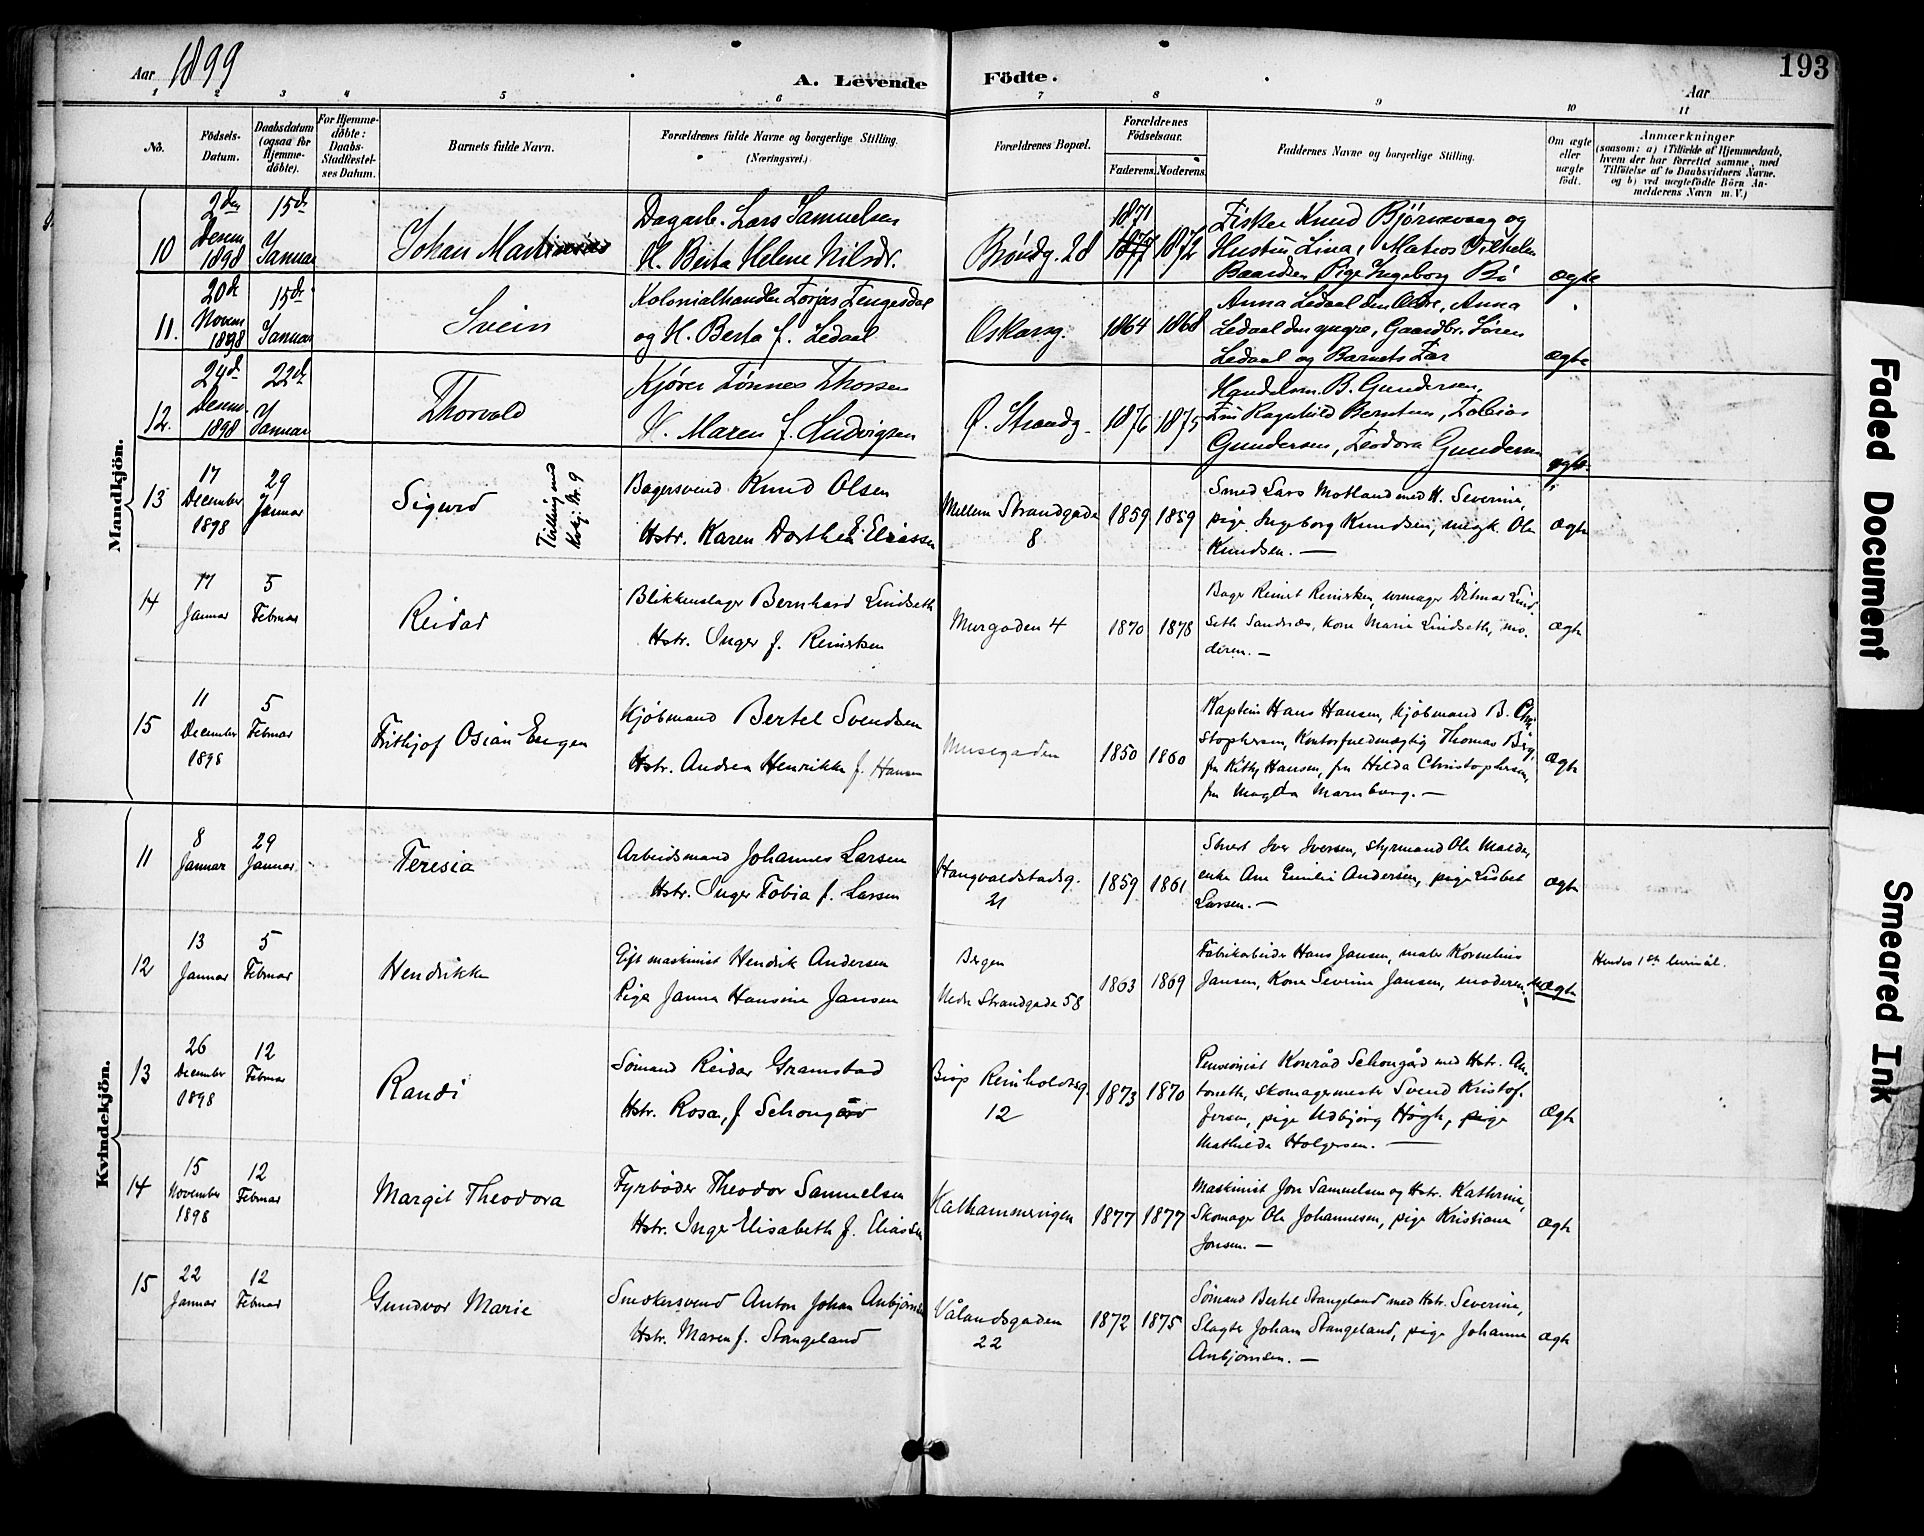 Aar 1899
A. Levende Födte.
193
Aar
1 2 3 4 5 6 7 8 9 10 11
No.
Födsels-Datum.
Daabsdatum (ogsaa for Hjemme-döbte).
For Hjemme-döbte: Daabs-Stadfæstel-ses Datum.
Barnets fulde Navn.
Forældrenes fulde Navne og borgerlige Stilling.
(Næringsvei.)
Forældrenes Bopæl.
Forældrenes Födselsaar.
Faderens. Moderens.
Faddernes Navne og borgerlige Stilling.
Om ægte eller uægte födt.
Anmærkninger
(saasom: a) i Tilfælde af Hjemmedaab,
hvem der har forrettet samme, med
Tilföielse af to Daabsvidners Navne.
og b) ved uægtefödte Börn An-
melderens Navn m.V.)
Mandkjön.
10
2den Decem 1898
15de Januar
Johan Martinius
Dagarb. Lars Samuelsen
H. Berta Helene Nilsdr.
Bröndg. 28
1871
1872
Fisker Knud Björnevaag og
Hustru Lina, Matros Vilhelm
Baardsen Pige Ingeborg Bö
ægte
11.
20de Novem 1898
15de Januar
Svein
Kolonialhandler Torjas Tengesdal
og H. Berta f. Ledaal
Oskarsg.
1864 1868
Anna Ledaal den Ældre, Anna
Ledaal den yngre, Gaardbr. Sören
Ledaal og Barnets Far
ægte
12.
24de Decem. 1898
22de Januar
Thorvald
Kjörer Tönnes Thorsen
H. Maren f. Ludvigsen
Ö. Strandg.
1876 1875
Handelsm. B. Gundersen,
Fru Ragnhild Berntsen, Tobias
Gundersen, Teodora Gundersen
ægte
13
17 December 1898
29 Januar
Sigurd
Tvilling med Kvkj. Nr. 9
Bagersvend Knud Olsen
Hstr. Karen Dorthea f. Eliassen
Mellem Strandgade
8
1859 1859
Smed Lars Motland med H. Severine,
pige Ingeborg Knudsen, ungk. Ole
Knudsen. —
Ægte
14
17 Januar
5 Februar
Reidar
Blikkenslager Bernhard Lindseth
Hstr. Inger f. Reinertsen
Murgaden 4
1870 1878
Bager Reinert Reinertsen, urmager Ditmar Lind
seth Sandnæs, kone Marie Lindseth, mo-
deren. —
Ægte
15
11 December 1898
5 Februar
Frithjof Osian Eugen
Kjöbmand Bertel Svendsen
Hstr. Andrea Henrikke f. Hansen
Musegaden
1850 1860
Kaptein Hans Hansen, Kjöbmand B. Chri
stophersen, Kontorfuldmægtig Thomas Berg,
fru Kitty Hansen, fru Hilda Christophersen,
fru Magda Marnburg. —
Ægte
Kvindekjön.
11
8 Januar
29 Januar
Teresia
Arbeidsmand Johannes Larsen
Hstr. Inger Tobia f. Larsen
Haugvaldstadsg.
21
1859 1861
Stuert Iver Iversen, styrmand Ole Malde,
enke Ane Emilie Andersen, pige Lisbet
Larsen. —
Ægte
12
13 Januar
5 Februar
Hendrikke
Gift maskinist Hendrik Andersen
Pige Janna Hansine Jansen
Bergen
Nedre Strandgade 58
1863 1869
Fabrikarbeider Hans Jansen, maler Kornelius
Jansen, Kone Severine Jansen, moderen.
uægte
Hendes 1ste leiermål.
13
26 December 1898
12 Februar
Randi
Sömand Reidar Gramstad
Hstr. Rosa, f Schongård
Bisp Reinholdsg.
12
1873 1870
Pensionist Konrad Schongård med Hstr. An-
tonette, skomagermester Svend Kristof-
fersen, pige Udbjörg Högh, pige
Mathilde Holgersen. —
Ægte
14
15 November 1898
12 Februar
Margit Theodora
Fyrböder Theodor Samuelsen
Hstr. Inge Elisabeth f. Eliassen
Kalhammervigen
1877 1877
Maskinist Jon Samuelsen og Hstr. Kathrine,
Skomager Ole Johannesen, pige Kristiane
Jonsen. —
Ægte
15
22 Januar
12 Februar
Gundvor Marie
Snekersvend Anton Johan Anbjörnsen
Hstr. Maren f. Stangeland
Vålandsgaden
22
1872 1875
Sömand Bertel Stangeland med Hstr. Severine,
Slagter Johan Stangeland, pige Johanne
Anbjörnsen. —
Ægte
Faded Document
Smeared Ink